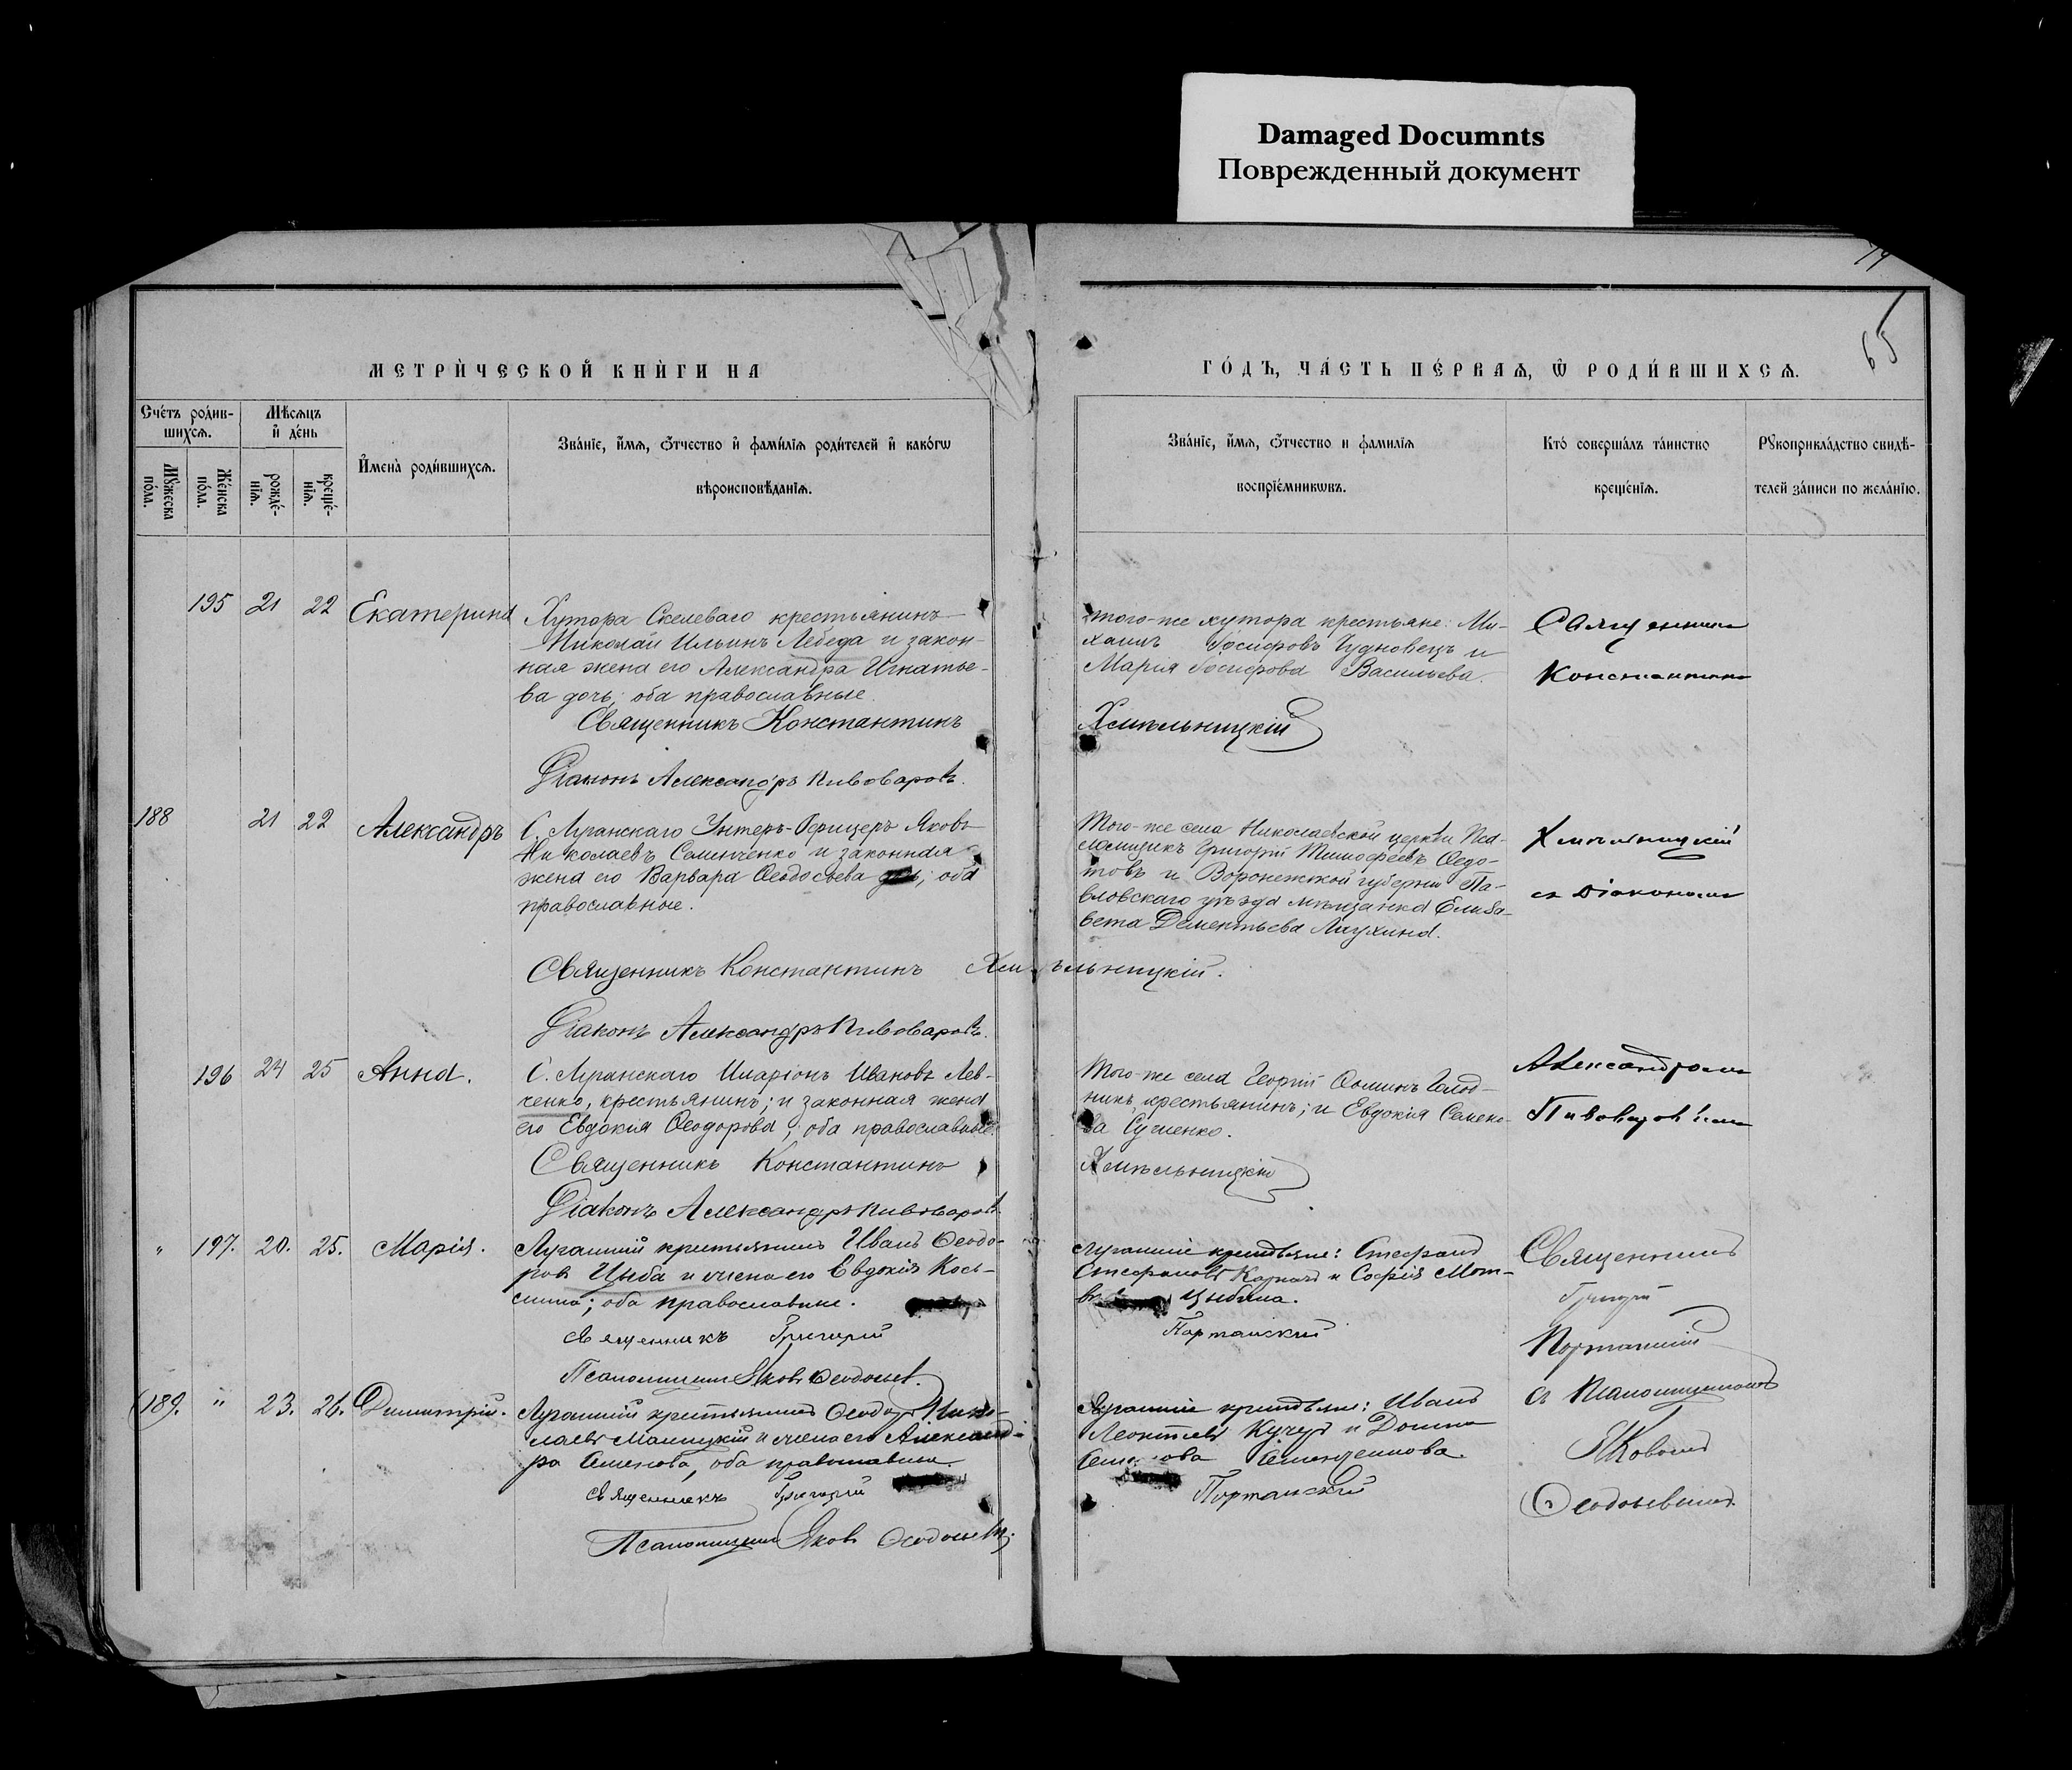 Damaged Documnts
Поврежденный документ
65
МЕТРИЧЕСКОЙ КНИГИ НА
ГОДЪ, ЧАСТЬ ПЕРВАЯ, Ѡ РОДИВШИХСЯ.
Счетъ родив-
шихся.
Мѣсяцъ
и день
Мужеска
пола.
Женска
пола.
рожде-
нія.
креще-
нія.
Имена родившихся.
Званіе, имя, отчество и фамилія родителей и какогѡ
вѣроисповѣданія.
Званіе, имя, отчество и фамилія
воспріемникѡвъ.
Кто совершалъ таинство
крещенія.
Рукоприкладство свидѣ-
телей записи по желанію.
195 21 22 Екатерина
Хутора Скелеваго крестьянинъ
Николай Ильинъ Лебеда и закон-
ная жена его Александра Игнатье-
ва дочь; оба православные.
Священникъ Константинъ
Діаконъ Александръ Пивоваровъ.
того-же хутора крестьяне: Ми-
хаилъ Іосифовъ Чудновецъ и
Марія Іосифова Васильева.
Хмѣльницкій
Священник
Константин
188 21 22 Александръ
С. Луганскаго Унтеръ-Офицеръ Яковъ
Николаевъ Семенченко и законная
жена его Варвара Ѳеодосьева; оба
православные.
Священникъ Константинъ Хмѣльницкій.
Діаконъ Александръ Пивоваровъ.
Того-же села Николаевской церкви Пса-
ломщикъ Григорій Тимофеевъ Ѳедо-
товъ и Воронежской губерніи Па-
вловскаго уѣзда мѣщанка Елиза-
вета Дементьева
Хмѣльницкій
съ Діакономъ
196 24 25 Анна.
С. Луганскаго Иларіонъ Ивановъ Лев-
ченко, крестьянинъ; и законная жена
его Евдокія Ѳеодорова; оба православные.
Священникъ Константинъ
Діаконъ Александръ Пивоваровъ
Того-же села Георгій Ѳоминъ
крестьянинъ; и Евдокія Семено-
ва
Хмѣльницкій
Александромъ
Пивоваровымъ
" 197. 20. 25. Марія.
Луганскій крестьянинъ Иванъ Ѳеодо-
ровъ Цыба и жена его Евдокія Кось-
мина; оба православные.
священникъ Григорій
Псаломщикъ Яковъ Ѳеодосьевъ.
Луганскіе крестьяне: Стефанъ
Стефановъ и Софія Мат-
Цыбина.
Портанскій
Священникъ
Григорій
Портанскій
189. " 23. 26. Димитрій.
Луганскій крестьянинъ Ѳеодоръ Нико-
лаевъ и жена его Александ-
ра Семенова, оба православные.
священникъ Григорій
Псаломщикъ Яковъ Ѳеодосьевъ.
Луганскіе крестьяне: Иванъ
Леонтьевъ Кучеръ и
Портанскій
съ Псаломщикомъ
Яковомъ
Ѳеодосьевымъ.